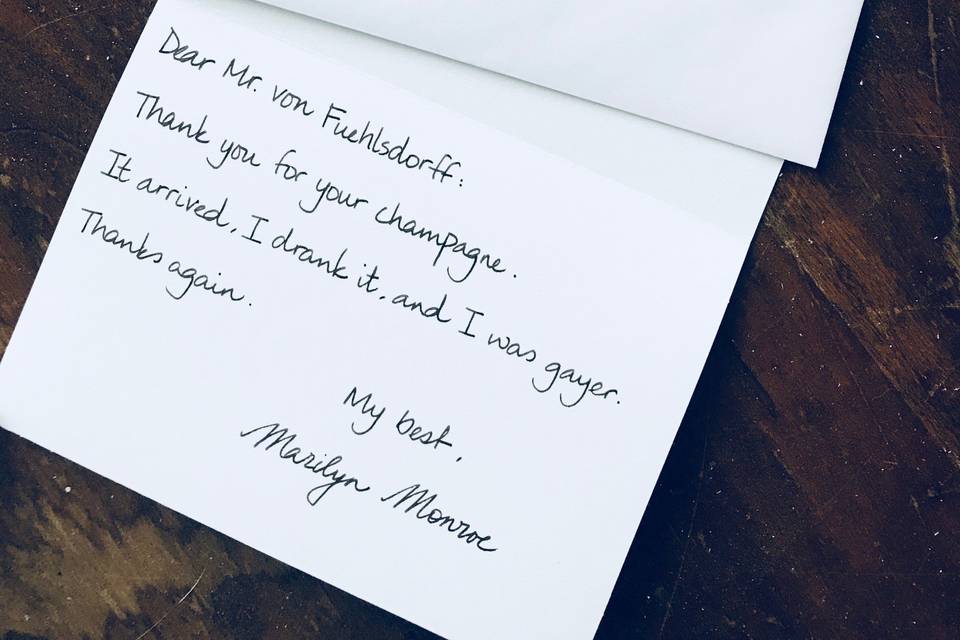 Dear Mr. von Fuehlsdorff:
Thank you for your champagne.
It arrived, I drank it, and I was gayer.
Thanks again.
My best,
Marilyn Monroe